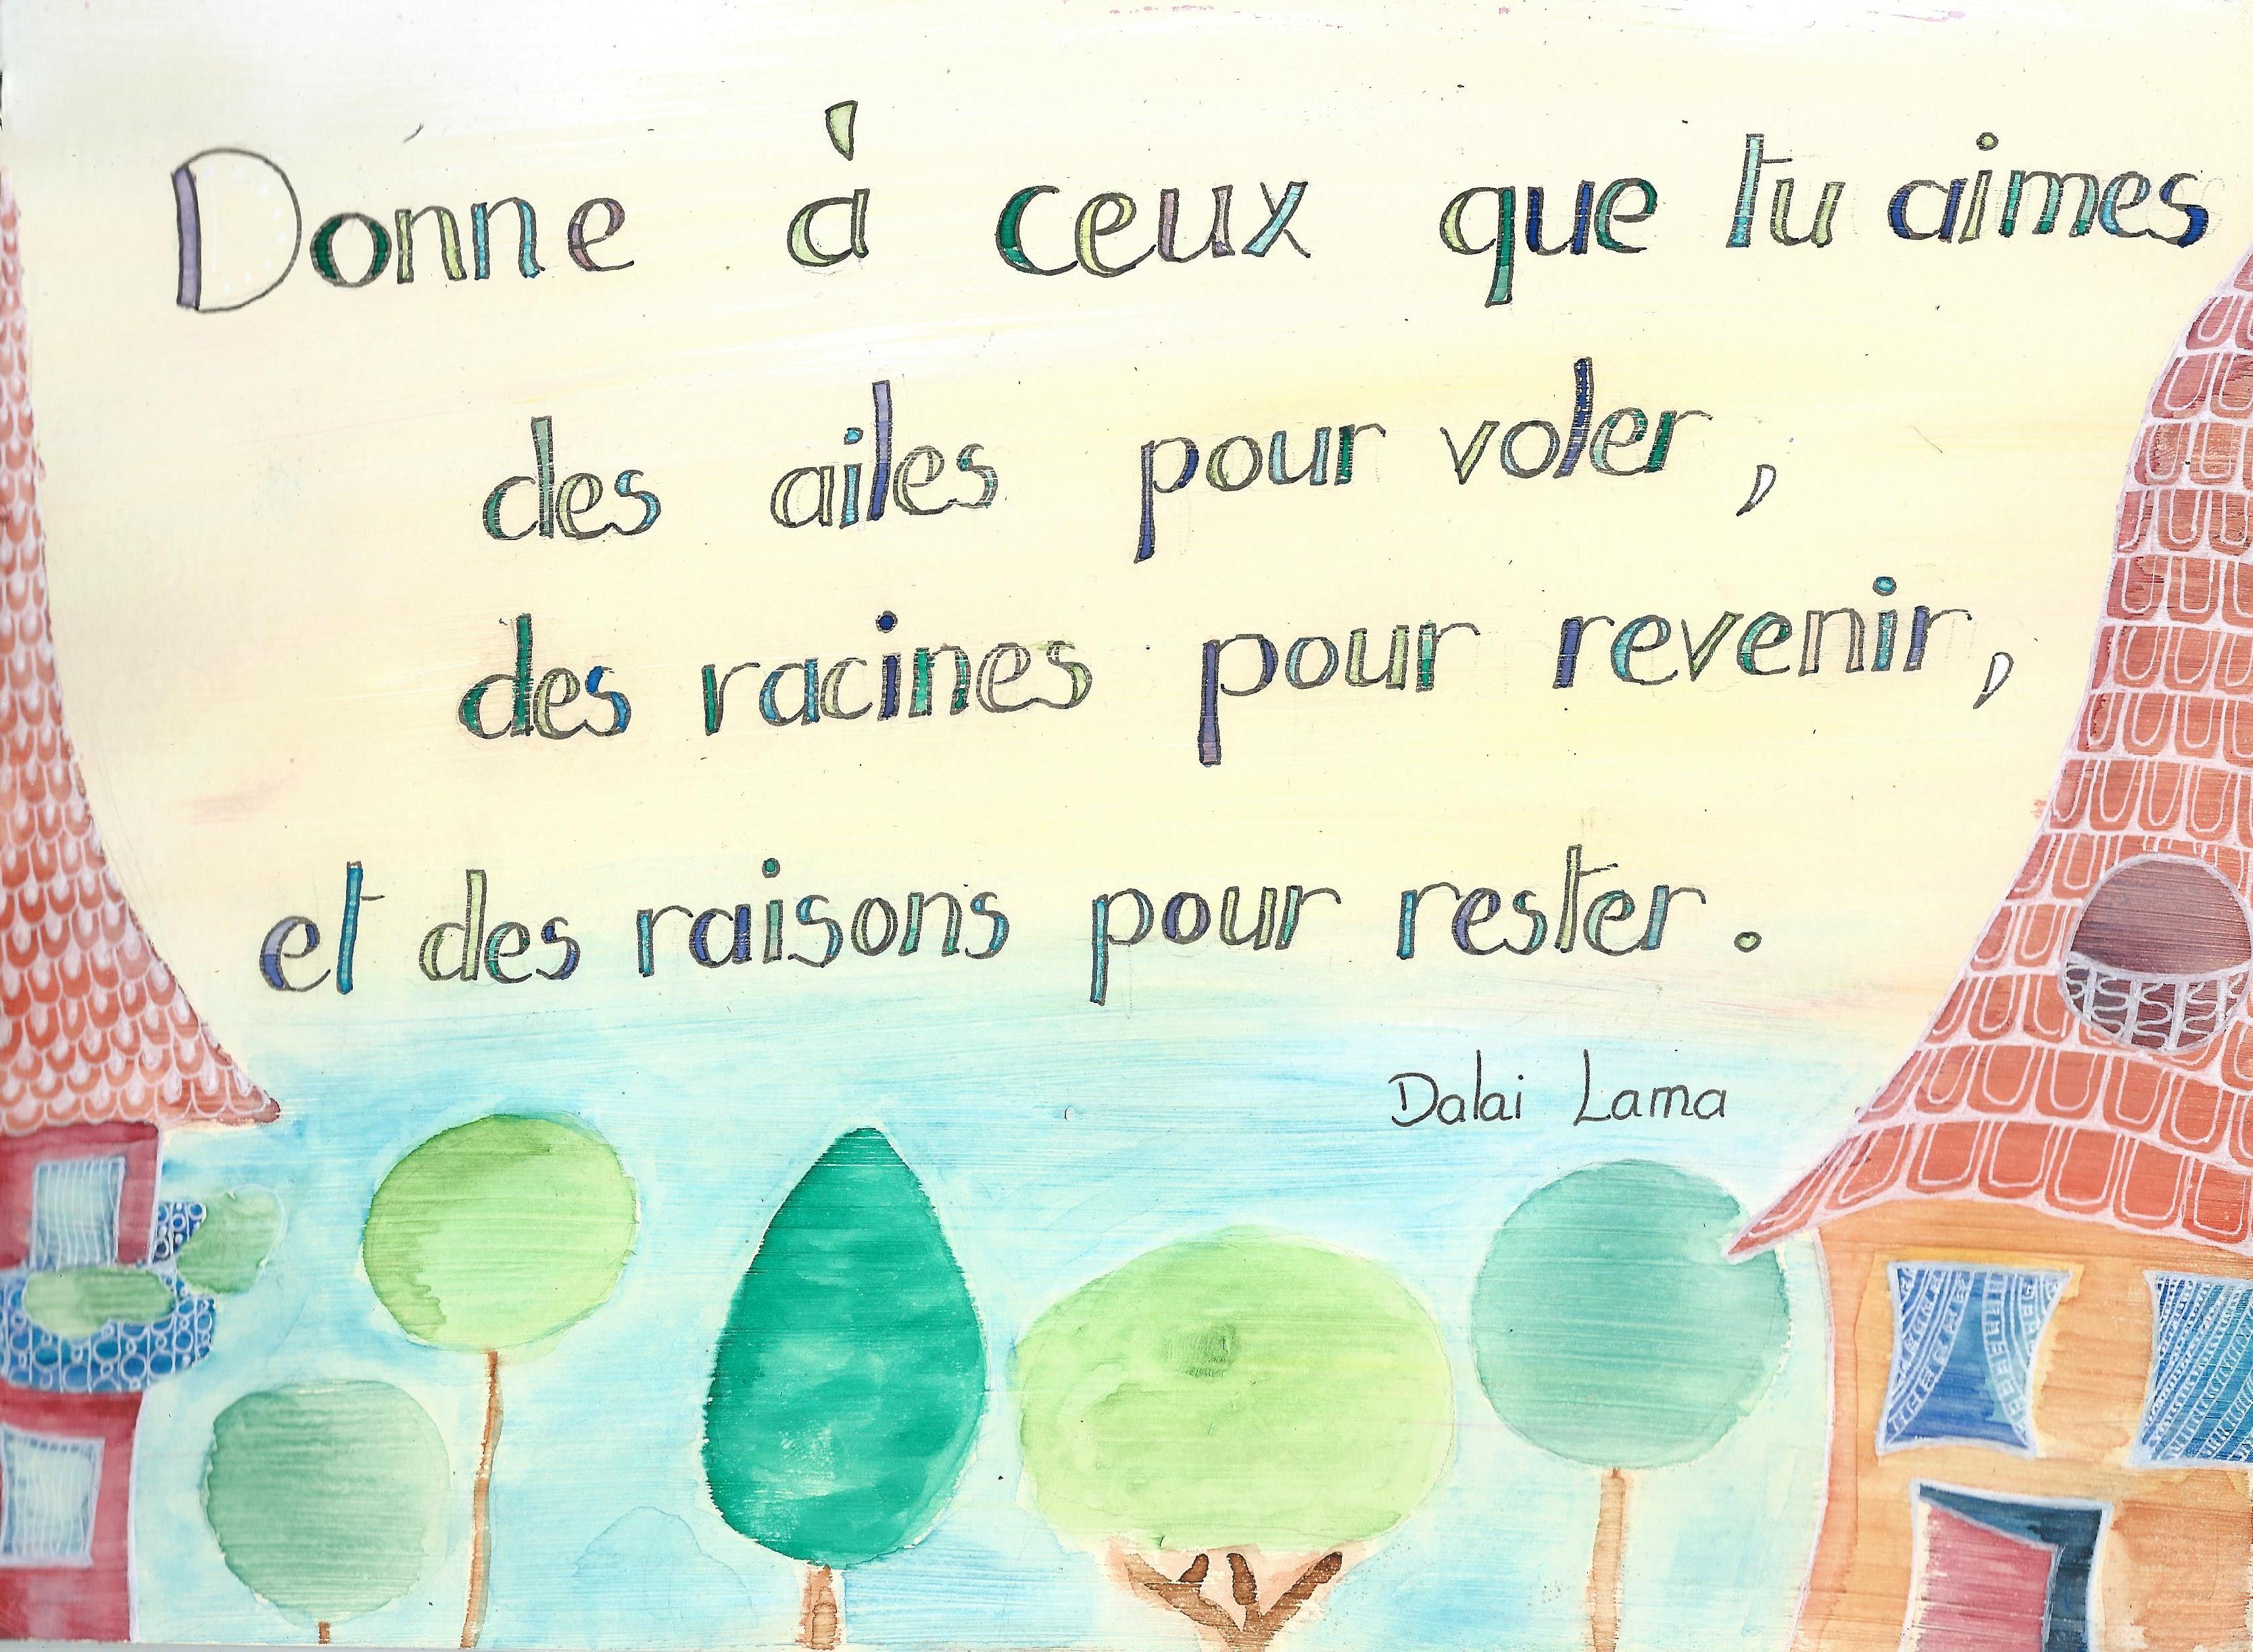 Donne à ceux que tu aimes
des ailes pour voler,
des racines pour revenir,
et des raisons pour rester.
Dalai Lama